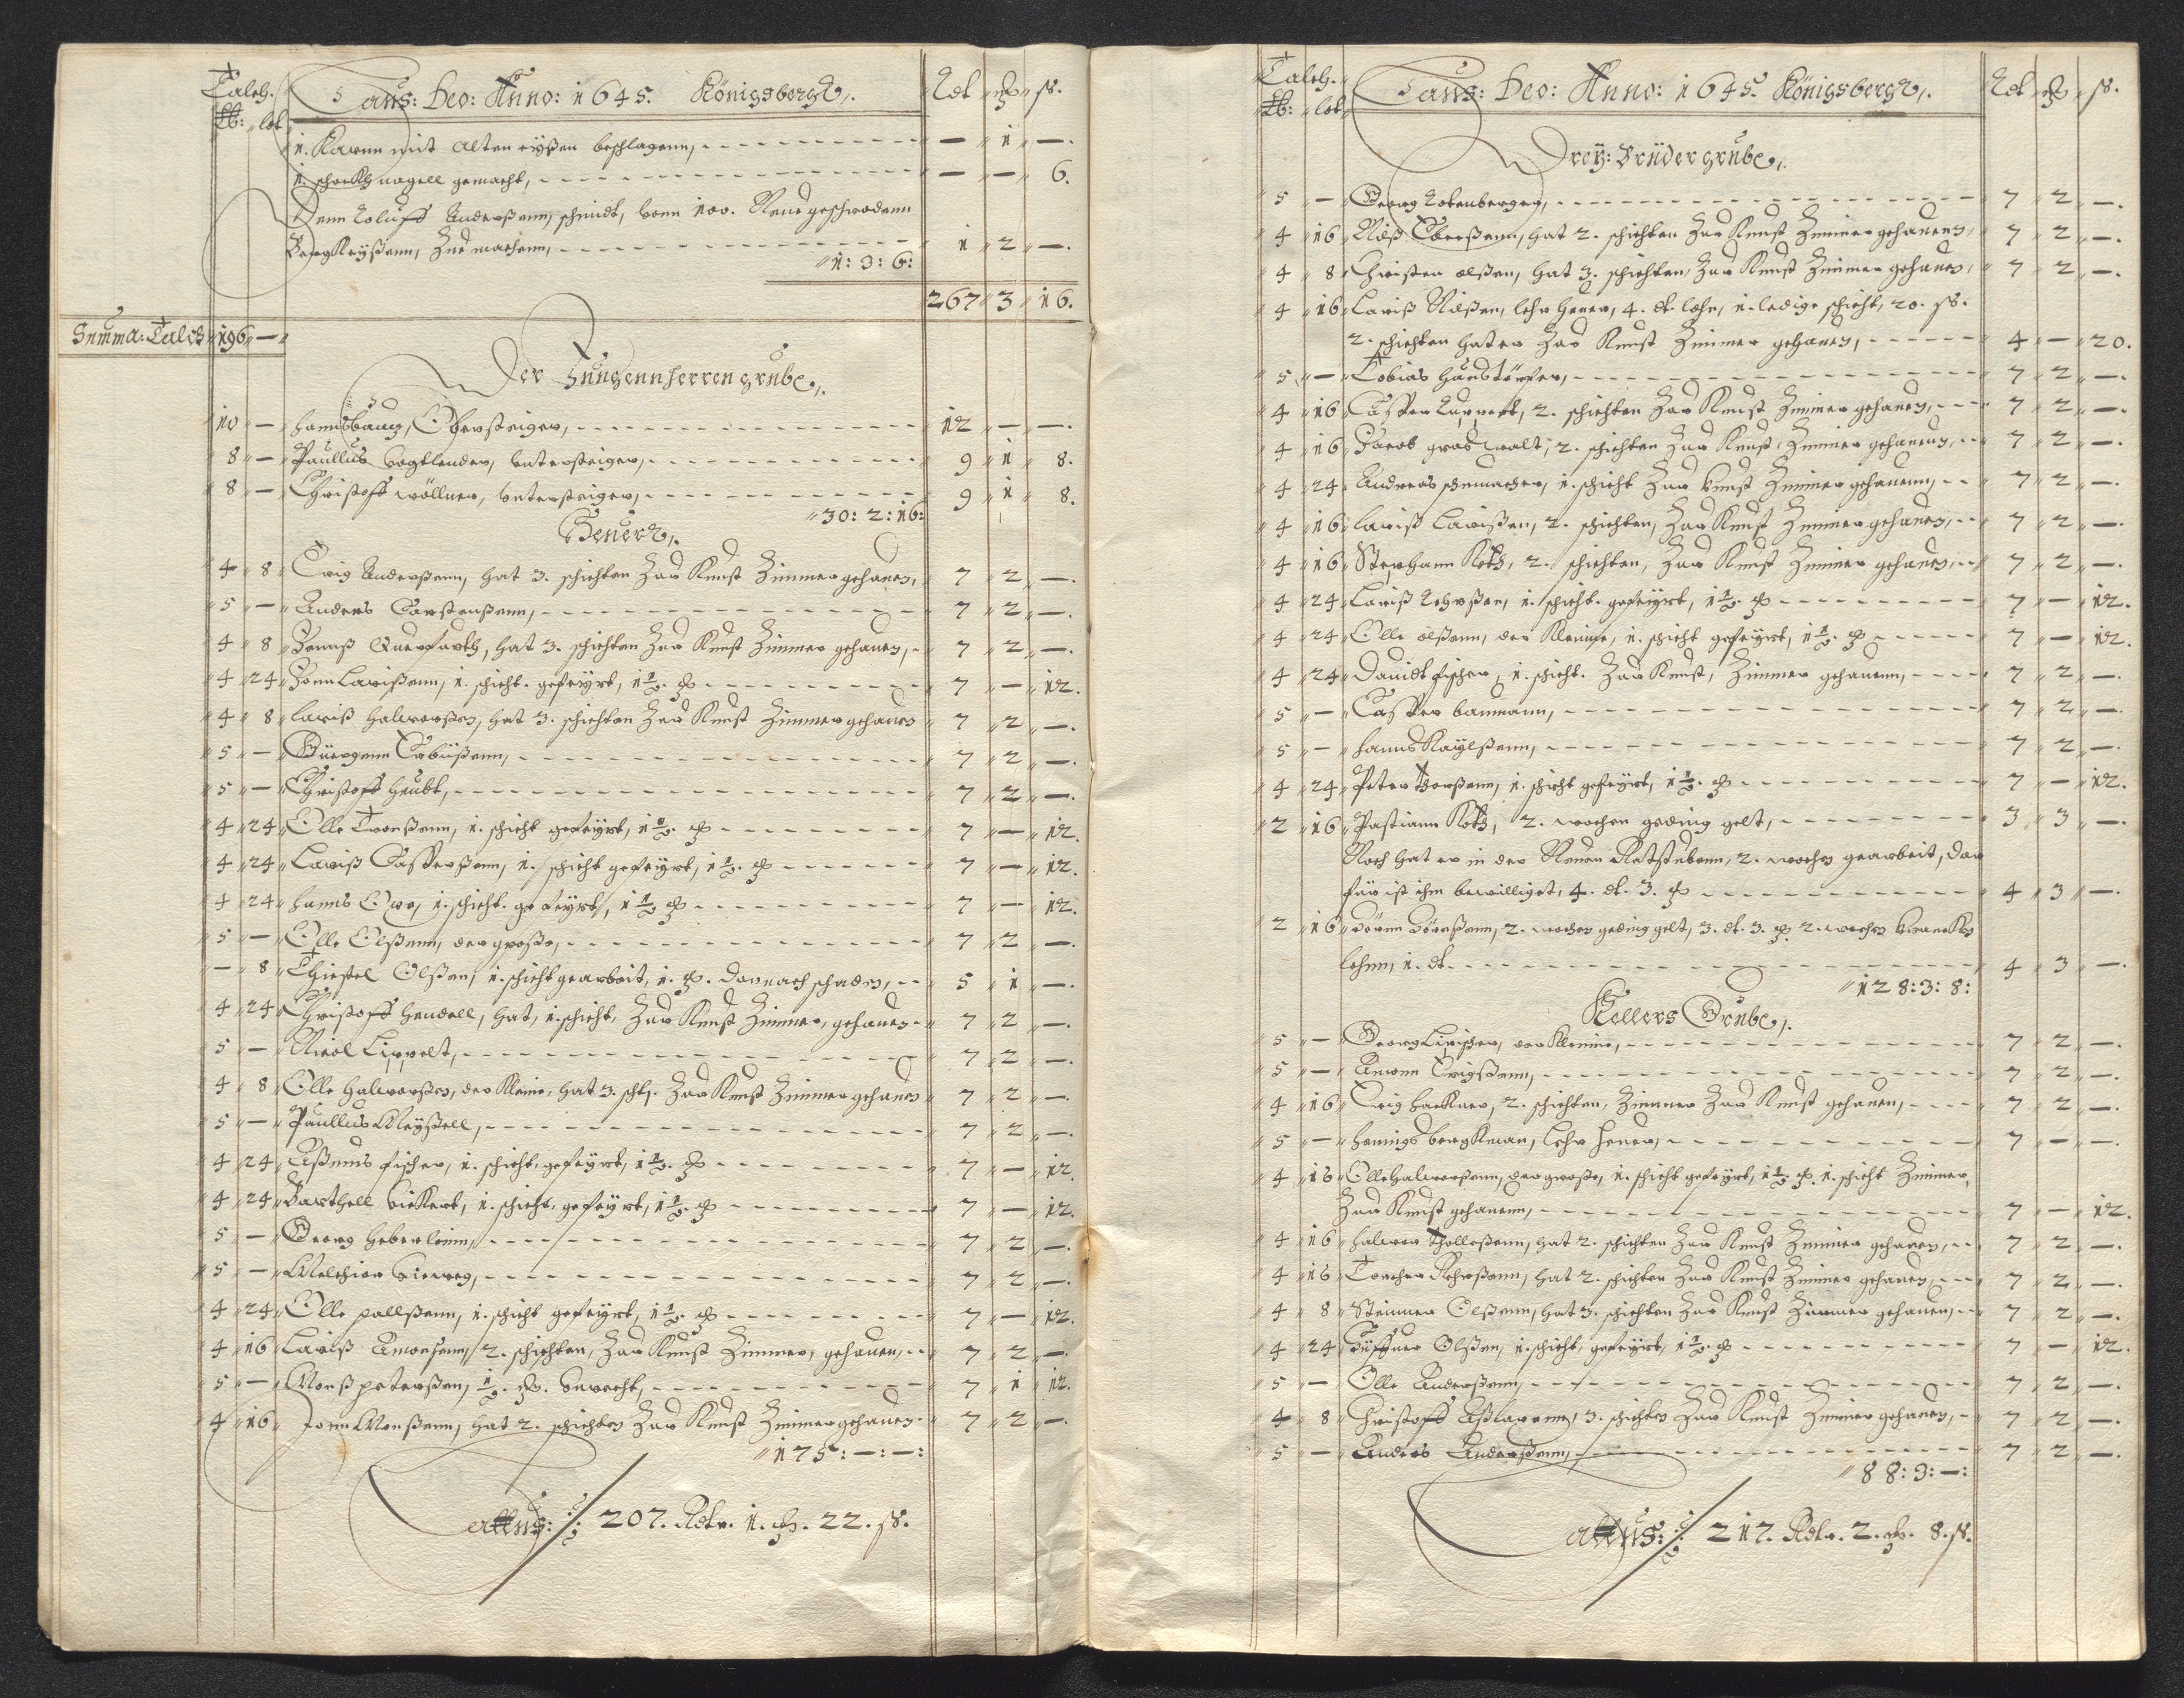 Talch. Laus: Deo: Anno: 1645. Königsbergk. Rdl ß.
℔: lot
1. Karnn mit alten eyßen beschlagenn, — 1 —.
1. schockh nagell gemacht, — — 6.
Denn Roluff Anderßenn, schmidt, vonn 100. Neue geschwodenn
Bergkeyßenn, Zue machenn, 1 2 —.
1: 3: 6:
267 3 16.
Summa: Talch 196 —
Der Jungenn Herren grube.
10 — Hannß baur, Obersteiger, 12 — —.
8 — Paullus Vogtlender, Untersteiger, 9 1 8.
8 — Christoff wöllner, Untersteiger, 9 1 8.
30: 2: 16:
Heuer.
4 8 Erig Anderßenn, hat 3. schichten Zur Kunst Zimmer gehauen, 7 2 —.
5 — Anders Carstenßenn, 7 2 —.
4 8 Hannß Querfurth, hat 3. schichten Zur Kunst Zimmer gehauen, 7 2 —.
4 24 Jonn Larißenn, 1. schicht. gefeyrt, 1½. 7 — 12.
4 8 Lariß Halworßen, hat 3. schichten Zur Kunst Zimmer gehauen 7 2 —.
5 — Güergenn Tobiißenn, 7 2 —.
5 — Christoff Heubt, 7 2 —.
4 24 Olle Tronßenn, 1. schicht gefeyrt, 1½. 7 — 12.
4 24 Lariß Casperßenn, 1. schicht gefeyrt, 1½. 7 — 12.
4 24 Hannß Owe, 1. schicht. gefeyrt, 1½ 7 — 12.
5 — Olle Olßenn, der große, 7 2 —.
— 8 Thiestel Olßen, 1. schicht gearbeit, 1. darnach schaden, 5 1 —.
4 24 Christoff Hendell, hat, 1. schicht, Zur Kunst Zimmer, gehauen 7 2 —.
5 — Nicol Lippelt, 7 2 —.
4 8 Olle Halworßen, der Kleine, hat 3. scht. Zur Kunst Zimmer gehauen 7 2 —.
5 — Paullus Meyßell, 7 2 —.
4 24 Aßmus fischer, 1. schicht, gefeyrt, 1½. 7 — 12.
4 24 Barthell Vickert, 1. schicht, gefeyrt, 1½. 7 — 12.
5 — Georg Heberleinn, 7 2 —.
5 — Melchior Vieweg, 7 2 —.
4 24 Olle pallßenn, 1. schicht gefeyrt, 1½. 7 — 12.
4 16 Lariß Amonßenn, 2. schichten, Zur Kunst Zimmer, gehauen, 7 2 —.
5 — Monß peterßen, ½. Unrecht, 7 1 12.
4 16 Jonn Monßenn, hat 2. schichten Zur Kunst Zimmer gehauen 7 2 —.
175: —: —:
Lattus: 207. Rdlr. 1. 22. ß.
Talch. Laus: Deo: Anno: 1645. Königsbergk. Rdl ß.
℔: lot
Drey: Brüder grube.
5 — Georg Rotenberger, 7 2 —.
4 16 Nilß Eberßenn, hat 2. schichten Zur Kunst Zimmer gehauenn, 7 2 —.
4 8 Christen olßen, hat 3. schichten, Zur Kunst Zimmer gehauen, 7 2 —.
4 16 Lariß Nilßen, lehr heuer, 4. dl. lohn, 1. ledige schicht, 20. ß.
2. schichten hat er Zur Kunst Zimmer gehauen, 4 — 20.
5 — Tobias Haustörfer, 7 2 —.
4 16 Casper Ruprecht, 2. schichten Zur Kunst Zimmer gehauen, 7 2 —.
4 16 Jacob graswalt, 2. schichten Zur Kunst, Zimmer gehauenn, 7 2 —.
4 24 Andreas schumacher, 1. schicht Zur Kunst Zimmer gehauenn, 7 2 —.
4 16 Lariß Larißen, 2. schichten, Zur Kunst Zimmer gehauen, 7 2 —.
4 16 Stephann Koth, 2. schichten, Zur Kunst Zimmer gehauen, 7 2 —.
4 24 Lariß Rohrßen, 1. schicht. gefeyrt, 1½. 7 — 12.
4 24 Olle olßenn, der Kleine, 1. schicht gefeyrt, 1½. 7 — 12.
4 24 Dauidt fischer, 1. schicht. Zur Kunst, Zimmer gehauenn, 7 2 —.
5 — Casper baumann, 7 2 —.
5 — Hannß Kayßlßenn, 7 2 —.
4 24 Peter Thorßenn, 1. schicht gefeyrt, 1½. 7 — 12.
2 16 Pastiann Koth, 2. wochen geding gelt, 3 3 —.
Noch hat er in der Neuen Ratstubenn, 2. wochen gearbeit, dar
für ist ihm bewilliget, 4. dl. 3. 4 3 —.
2 16 Börnn Börnßenn, 2. wochen geding gelt, 3. dl. 3. 2. wochen Kranken
lohnn, 1. dl. 4 3 —.
128: 3: 8:
Kellers Grube.
5 — Georg Lipischer, der Kleine, 7 2 —.
5 — Amonn Erigßenn, 7 2 —.
4 16 Erig Hackner, 2. schichten, Zimmer Zur Kunst gehauen, 7 2 —.
5 — Hennigs bergkman, lehr Heuer, 7 — —.
4 16 Olle Halworßenn, der große, 1. schicht gefeyrt, 1½. 1. schicht Zimmer,
Zur Kunst gehauenn, 7 — 12.
4 16 Halwor Tholleßenn, hat 2. schichten Zur Kunst Zimmer gehauen, 7 2 —.
4 16 Torcher Rohrßenn, hat 2. schichten Zur Kunst Zimmer gehauen, 7 2 —.
4 8 Steinner Olßenn, hat 3. schichten Zur Kunst Zimmer gehauen, 7 2 —.
4 24 Güffuer Olßen, 1. schicht, gefeyrt, 1½. 7 — 12.
5 — Olle Anderßenn, 7 2 —.
4 8 Christoff Aßlacenn, 3. schichten Zur Kunst Zimmer gehauen, 7 2 —.
5 — Anders Anderßenn, 7 2 —.
88: 3: —:
Lattus: 217. Rdlr. 2. 8. ß.